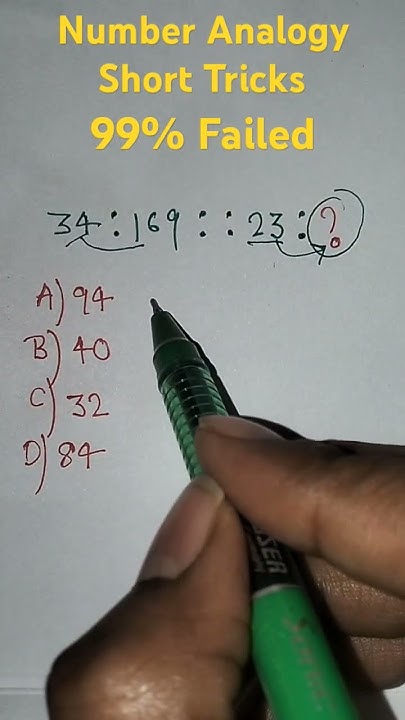 Number Analogy
Short Tricks
99% Failed
34 : 169 : : 23 : ?
A) 94
B) 40
C) 32
D) 84